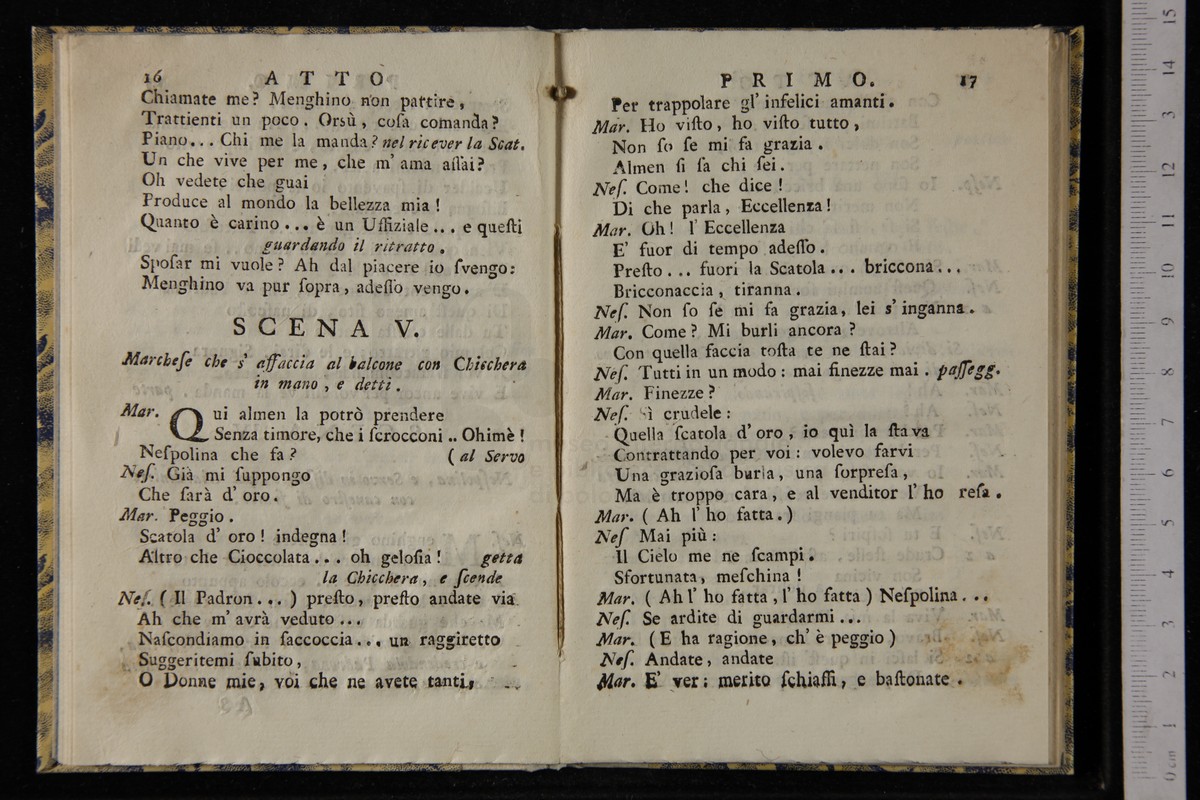 16 ATTO
Chiamate me? Menghino non partire,
Trattienti un poco. Orsù, coſa comanda?
Piano... Chi me la manda? nel ricever la Scat.
Un che vive per me, che m' ama aſſai?
Oh vedete che guai
Produce al mondo la bellezza mia!
Quanto è carino... è un Uffiziale... e queſti
guardando il ritratto.
Spoſar mi vuole? Ah dal piacere io ſvengo:
Menghino va pur ſopra, adeſſo vengo.
SCENA V.
Marcheſe che s' affaccia al balcone con Chicchera
in mano, e detti.
Mar. Qui almen la potrò prendere
Senza timore, che i ſcrocconi.. Ohimè!
Neſpolina che fa? (al Servo
Neſ. Già mi ſuppongo
Che ſarà d' oro.
Mar. Peggio.
Scatola d' oro! indegna!
Altro che Cioccolata... oh geloſia! getta
la Chicchera, e ſcende
Neſ. (Il Padron...) preſto, preſto andate via
Ah che m' avrà veduto...
Naſcondiamo in ſaccoccia... un raggiretto
Suggeritemi ſubito,
O Donne mie, voi che ne avete tanti,
PRIMO. 17
Per trappolare gl' infelici amanti.
Mar. Ho viſto, ho viſto tutto,
Non ſo ſe mi fa grazia.
Almen ſi ſa chi ſei.
Neſ. Come! che dice!
Di che parla, Eccellenza!
Mar. Oh! l' Eccellenza
E' fuor di tempo adeſſo.
Preſto... fuori la Scatola... briccona...
Bricconaccia, tiranna.
Neſ. Non ſo ſe mi fa grazia, lei s' inganna.
Mar. Come? Mi burli ancora?
Con quella faccia toſta te ne ſtai?
Neſ. Tutti in un modo: mai finezze mai. paſſegg.
Mar. Finezze?
Neſ. Sì crudele:
Quella ſcatola d' oro, io quì la ſtava
Contrattando per voi: volevo farvi
Una grazioſa burla, una ſorpreſa,
Ma è troppo cara, e al venditor l' ho reſa.
Mar. (Ah l' ho fatta.)
Neſ Mai più:
Il Cielo me ne ſcampi.
Sfortunata, meſchina!
Mar. (Ah l' ho fatta, l' ho fatta) Neſpolina...
Neſ. Se ardite di guardarmi...
Mar. (E ha ragione, ch' è peggio)
Neſ. Andate, andate
Mar. E' ver: merito ſchiaffi, e baſtonate.